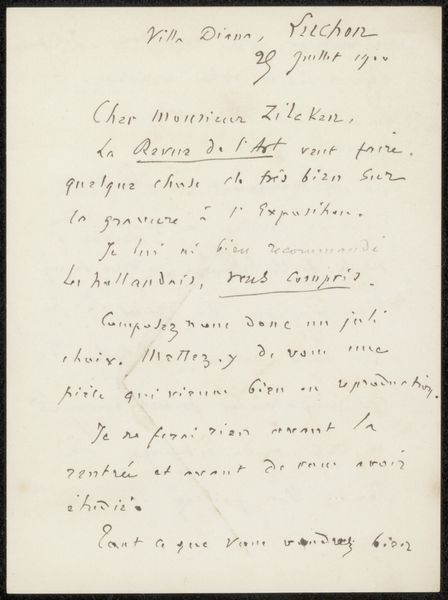 Villa Diana, Luchon
25 Juillet 1900
Cher Monsieur Zilcken,
La Revue de l'Art veut faire
quelque chose de très bien sur
la gravure à l'Exposition.
Je lui ai bien recommandé
les hollandais, vous compris.
Composez nous donc un joli
choix. Mettez-y de vous une
pièce qui vienne bien en reproduction.
Je ne ferai rien avant la
rentrée et avant de vous avoir
étudié.
Tout ce que vous voudrez bien